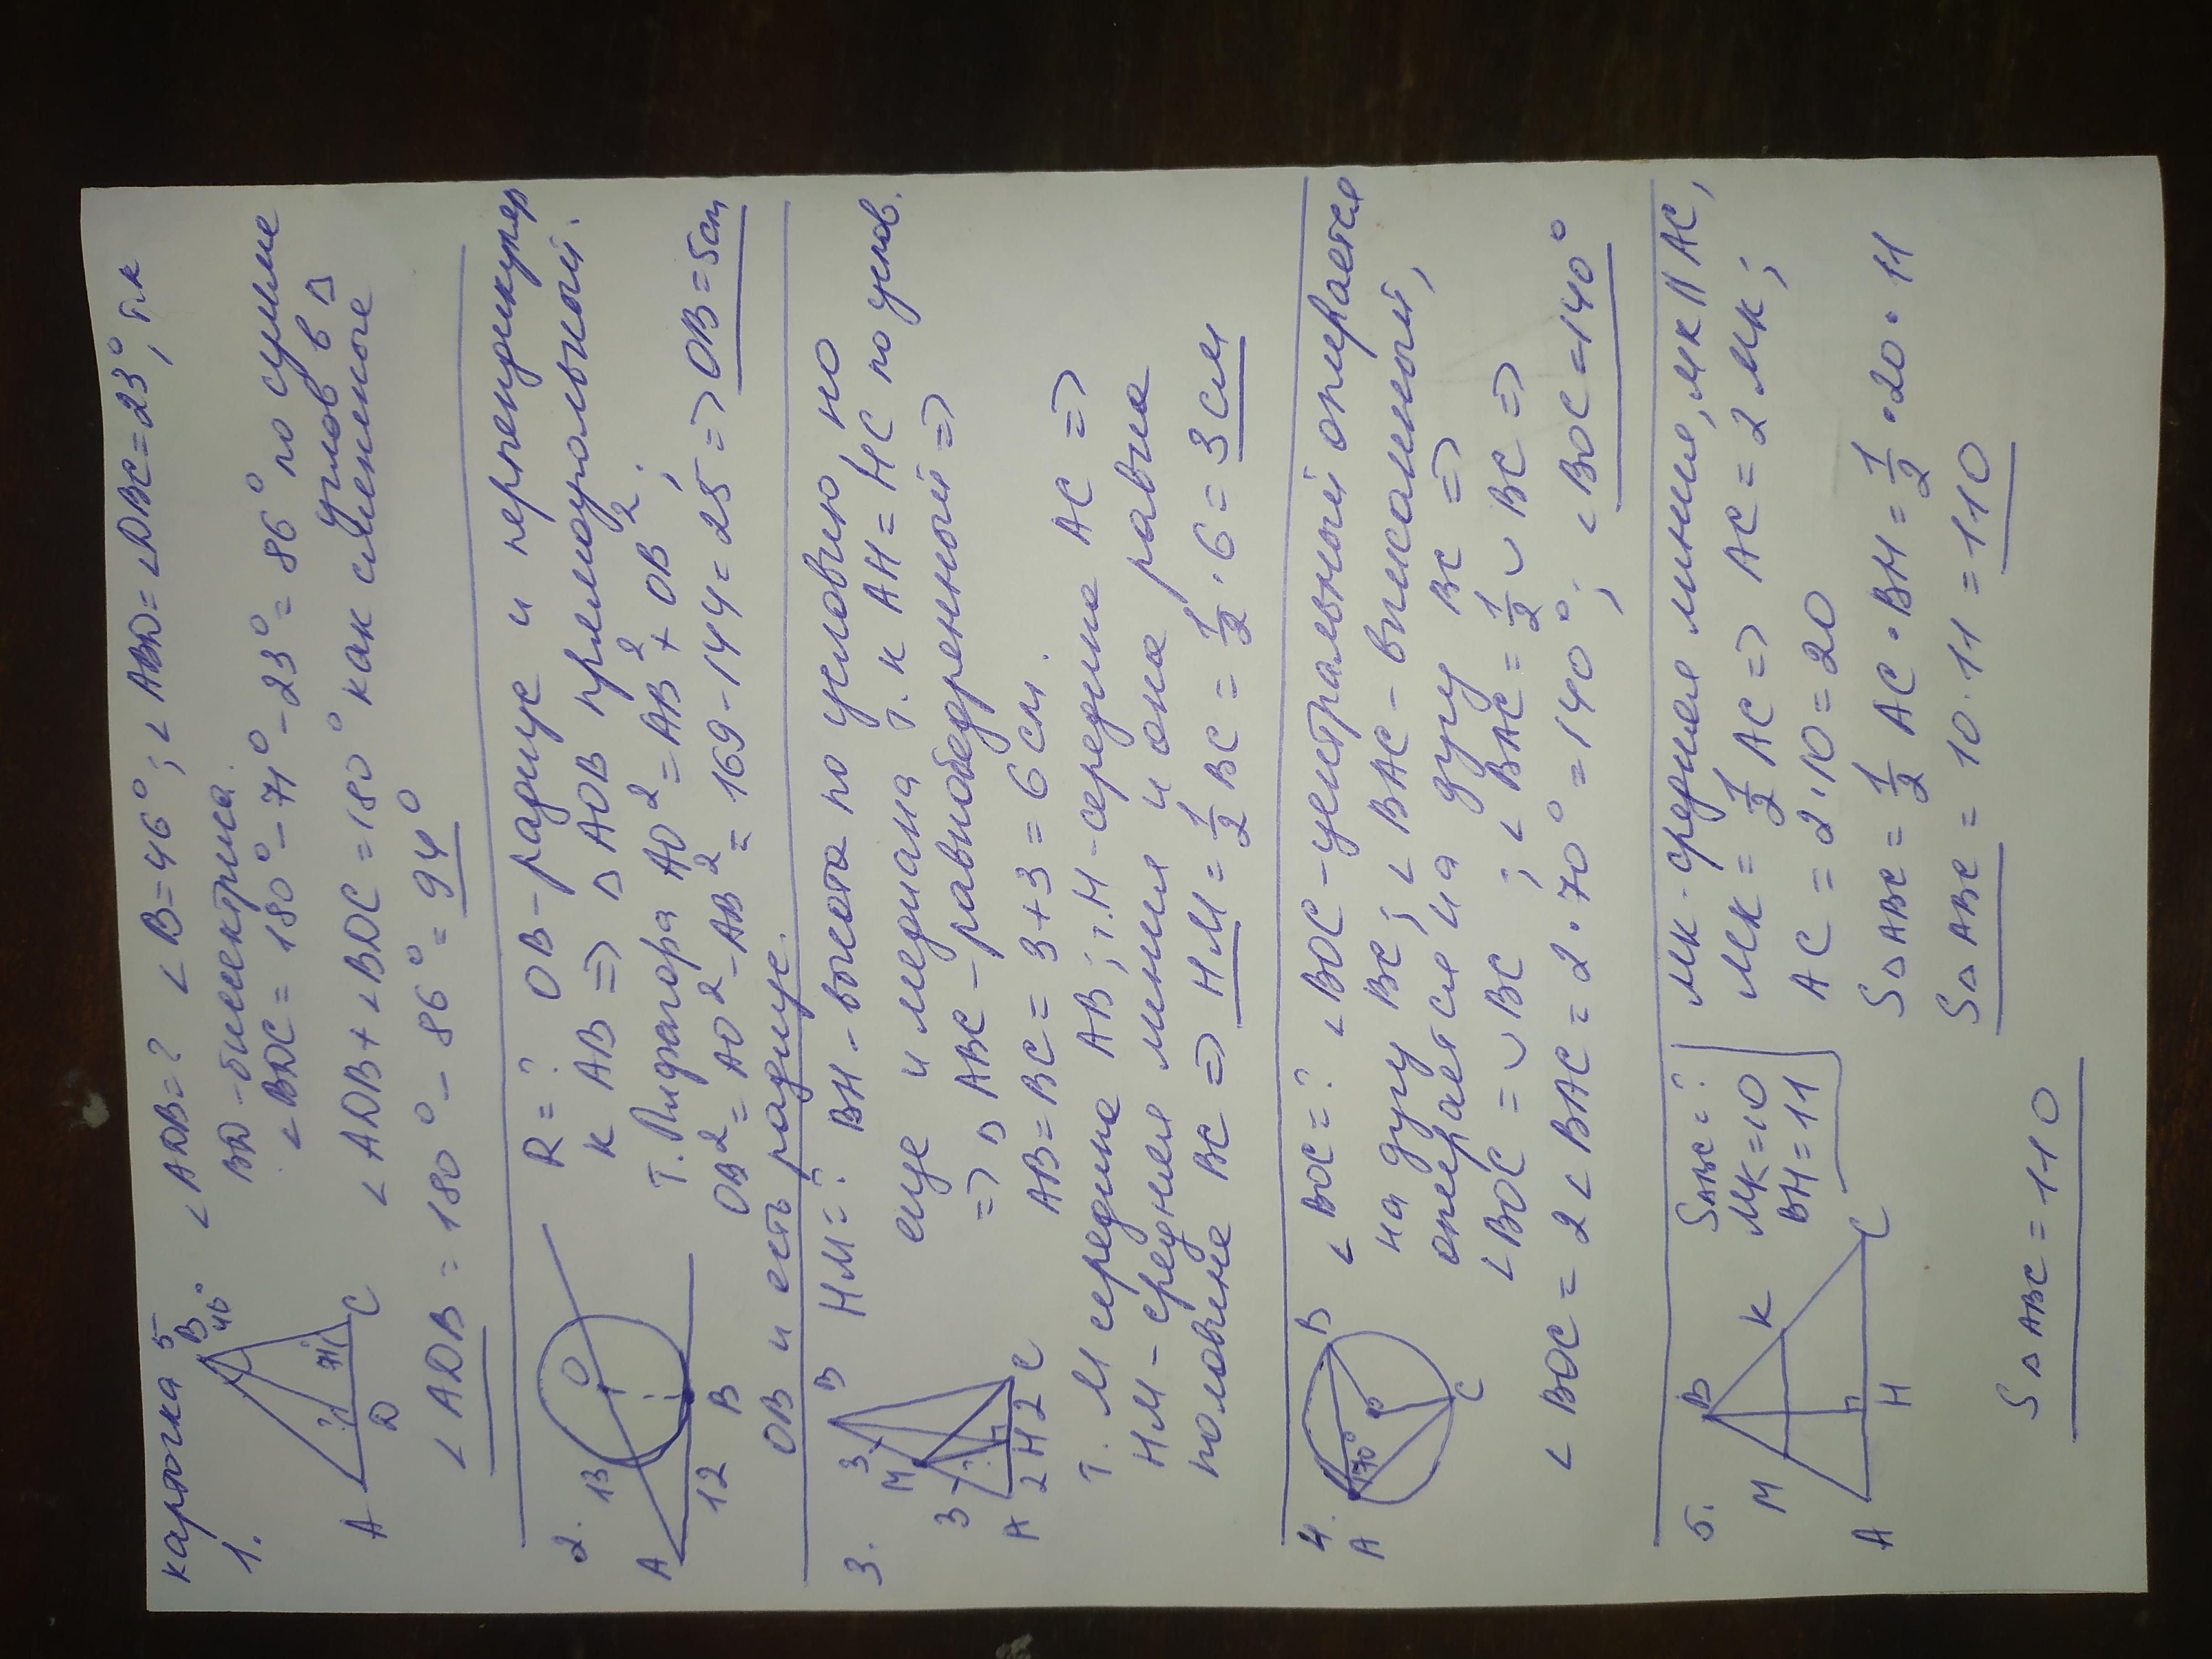 карточка 5
1. ∠ADB=? ∠B=46°; ∠ABD=∠DBC=23°, т.к
BD-биссектриса.
∠BDC = 180°-71°-23°=86° по сумме
углов в △
∠ADB+∠BDC=180° как смежные
∠ADB = 180°-86°=94°
B
46°
71°
A
D
C
2. R=? OB-радиус и перпендикуляр
к AB => △AOB прямоугольный.
Т. Пифагора AO²=AB²+OB²;
OB²=AO²-AB²=169-144=25 => OB=5см
OB и есть радиус.
13
O
A
12
B
3. HM=? BH-высота по условию но
еще и медиана т.к AH=HC по услов.
=> △ABC-равнобедренный =>
AB=BC=3+3=6см.
т. M середина AB; т.H-середина AC =>
HM-средняя линия и она равна
половине BC => HM=1/2 BC=1/2·6=3см
B
3
M
3
A
2
H
2
C
4. ∠BOC=? ∠BOC-центральный опирается
на дугу BC; ∠BAC-вписанный,
опирается на дугу BC =>
∠BOC=◡BC; ∠BAC=1/2◡BC =>
∠BOC=2∠BAC=2·70°=140°; ∠BOC=140°
A
B
70°
O
C
5. S△ABC=?
MK=10
BH=11
MK-средняя линия, MK||AC,
MK=1/2 AC => AC=2MK;
AC=2·10=20
S△ABC=1/2 AC·BH=1/2·20·11
S△ABC=10·11=110
B
M
K
A
H
C
S△ABC=110